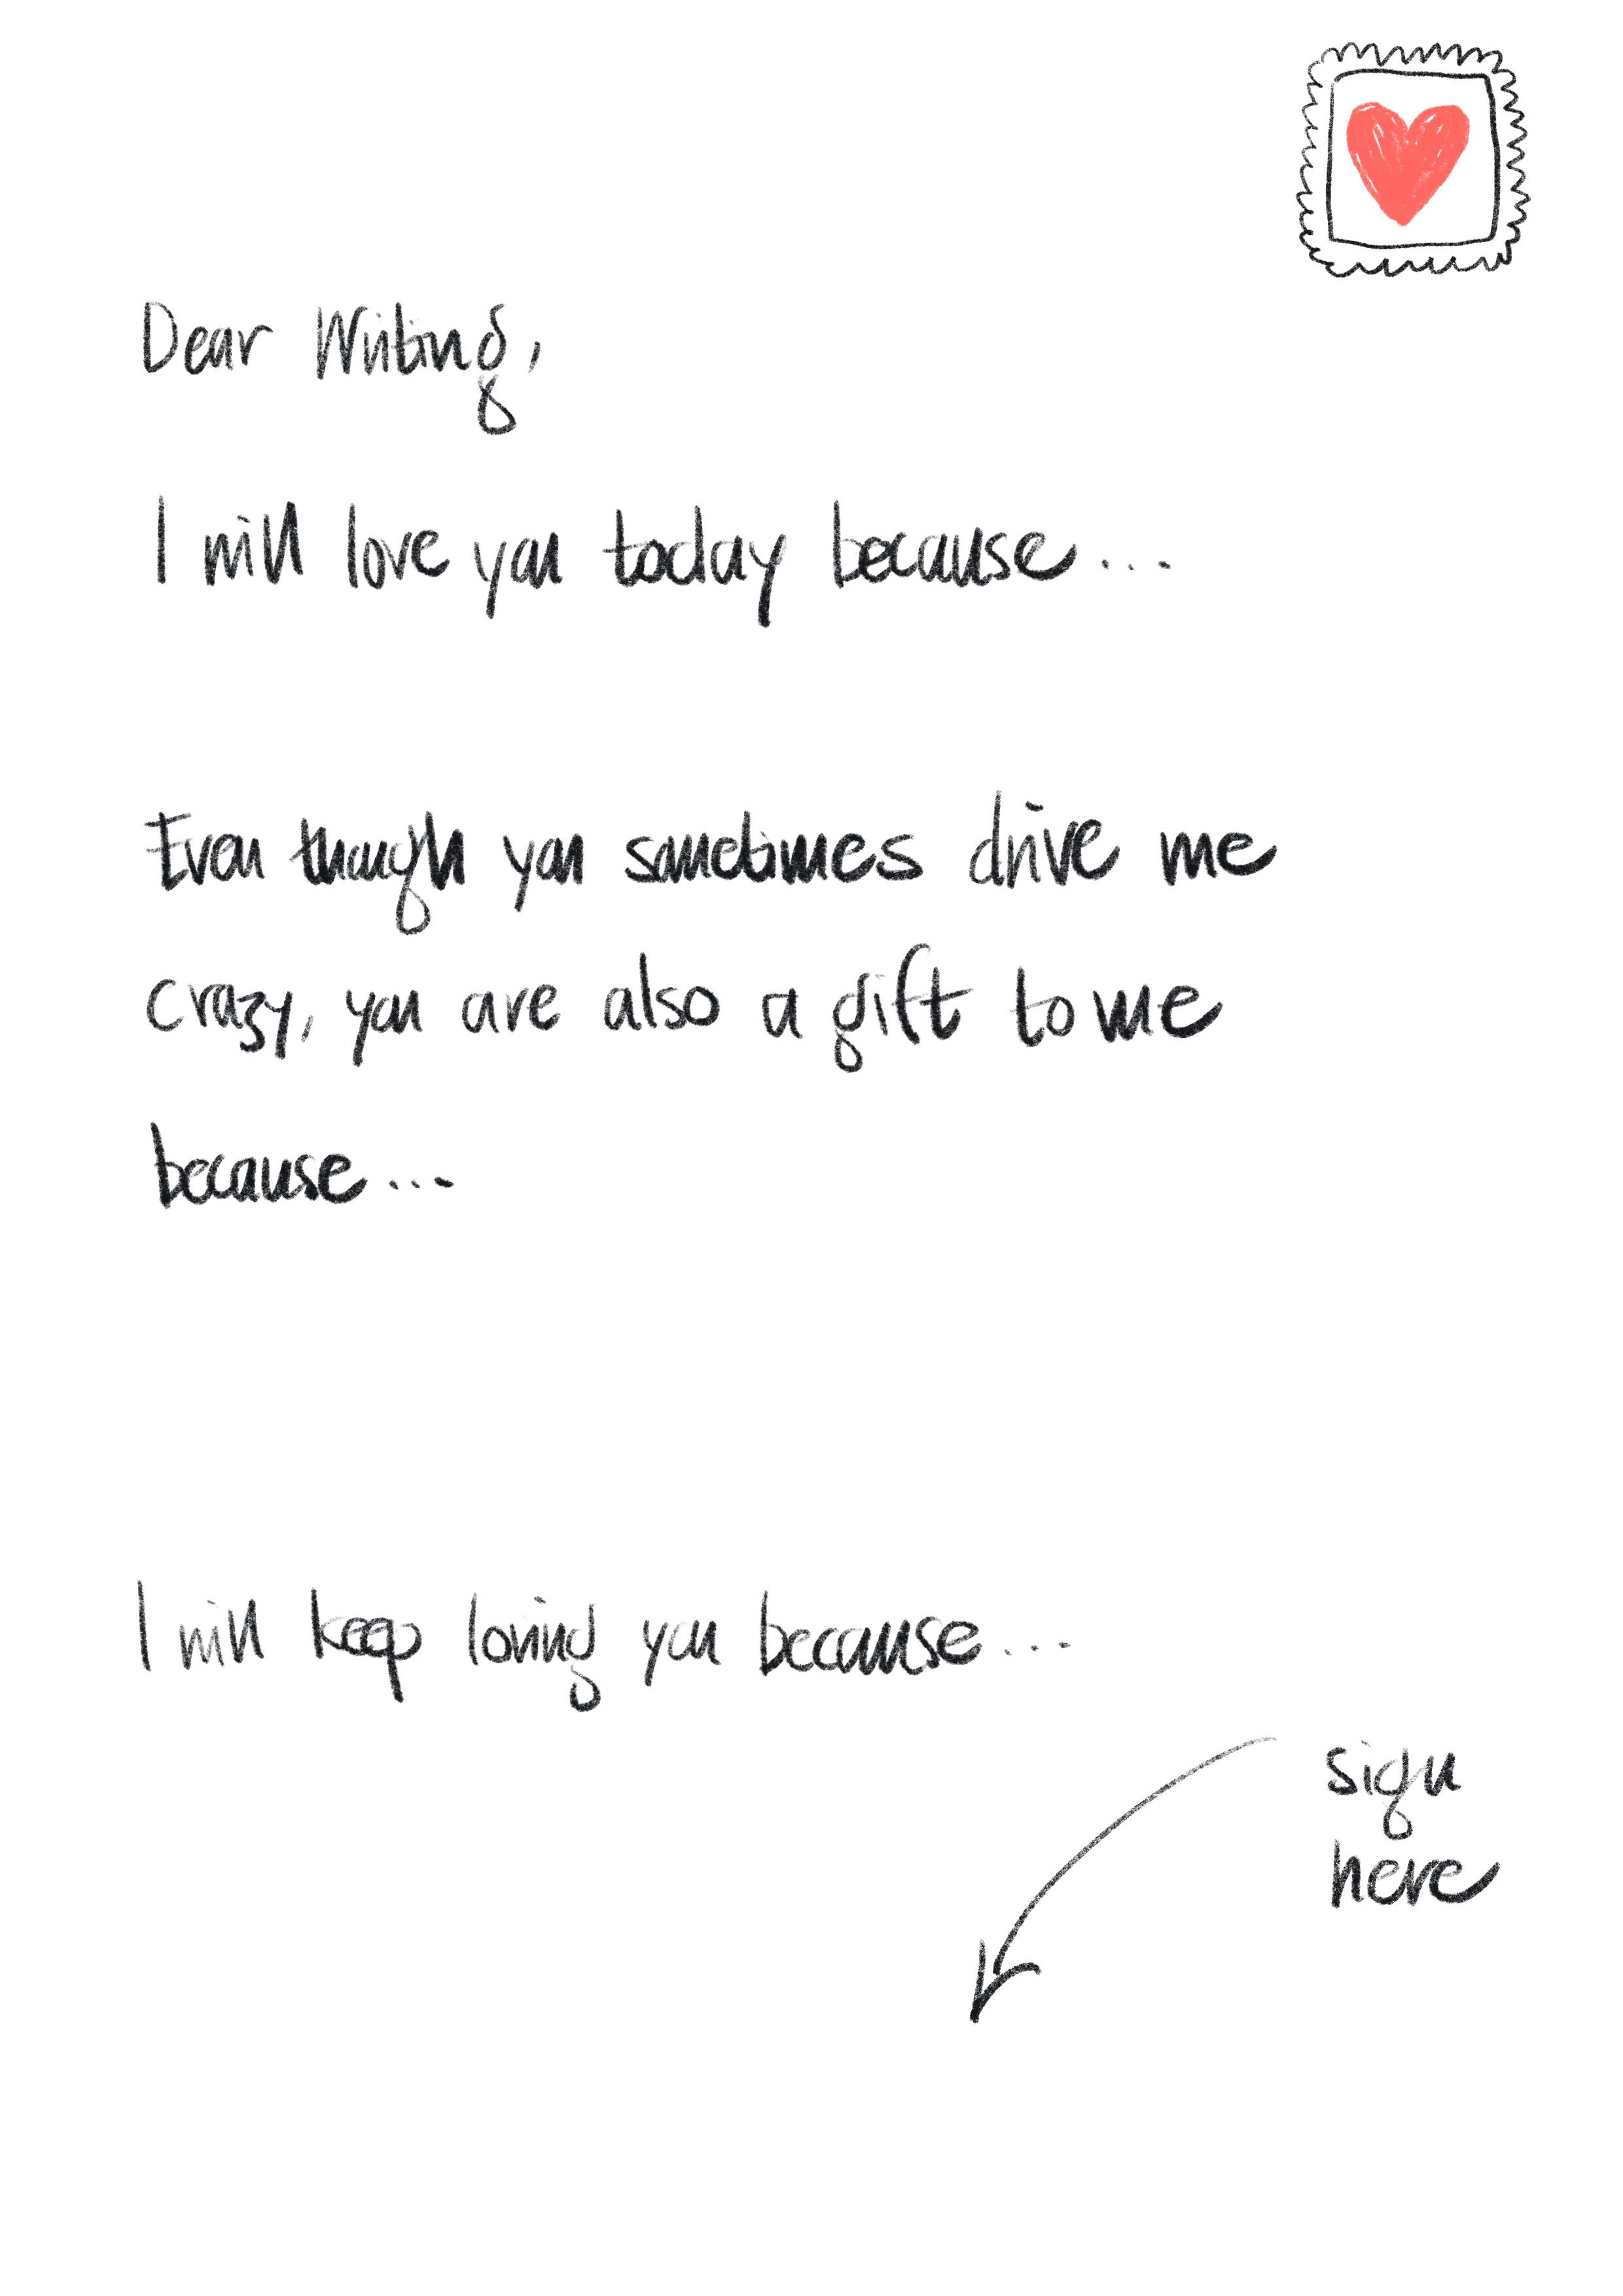 Dear Writing,
I will love you today because...
Even though you sometimes drive me
crazy, you are also a gift to me
because...
I will keep loving you because...
sign
here